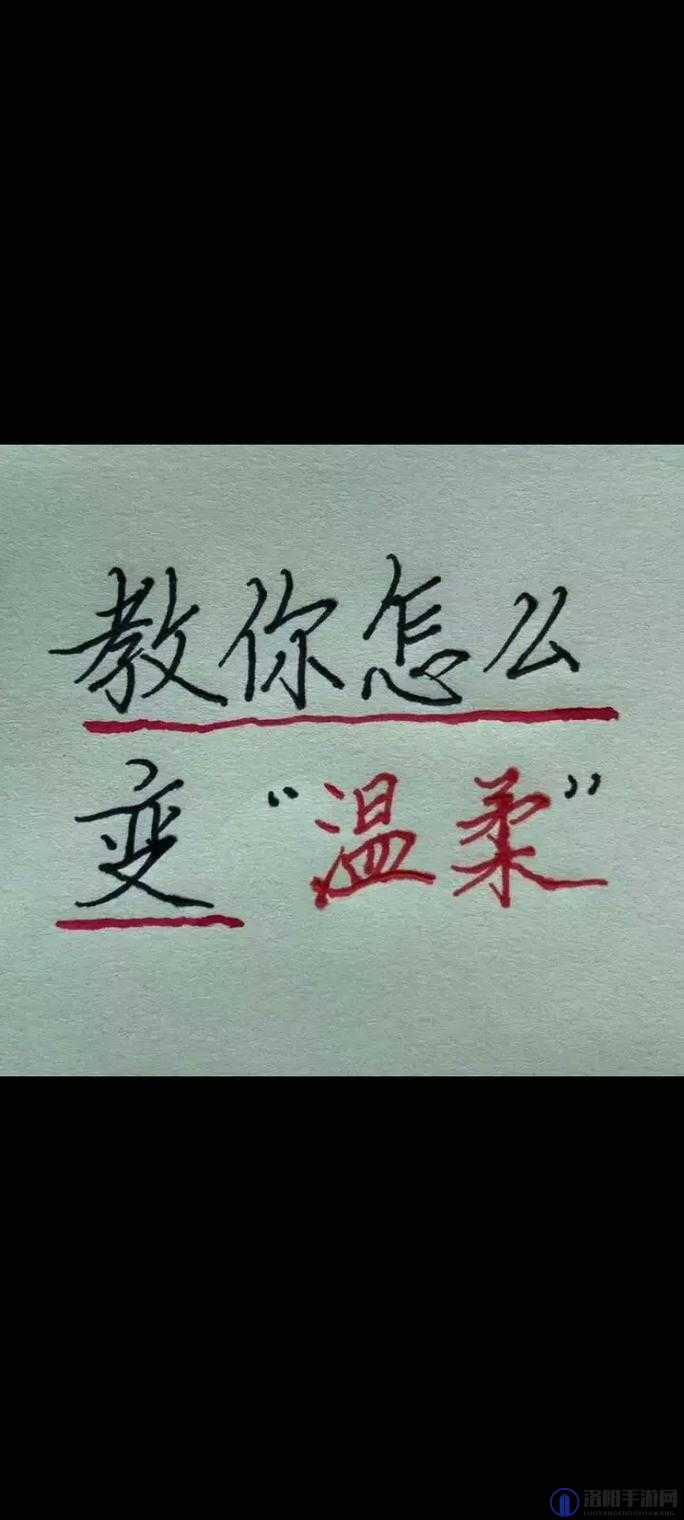 教你怎么
变“温柔”
洛阳手游网